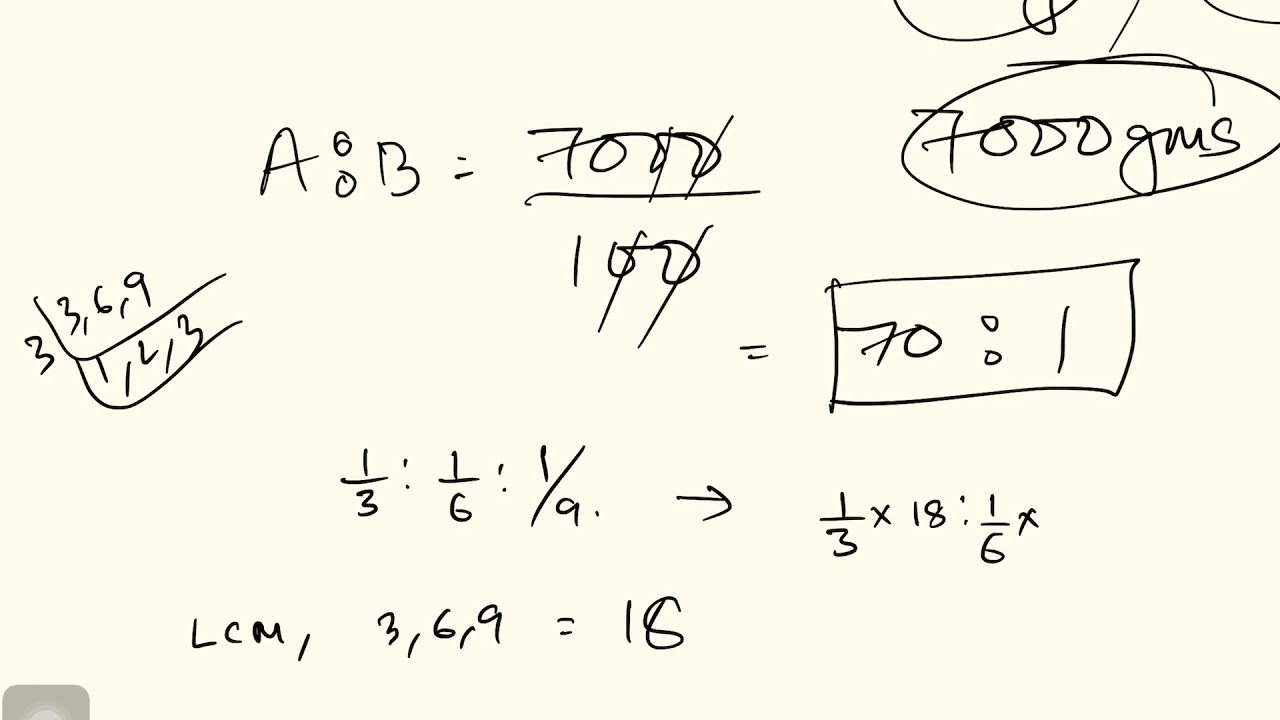 7000 gms
A : B = 7000
100
= 70 : 1
3, 6, 9
3 1, 2, 3
1/3 : 1/6 : 1/9. → 1/3 × 18 : 1/6 ×
LCM, 3, 6, 9 = 18